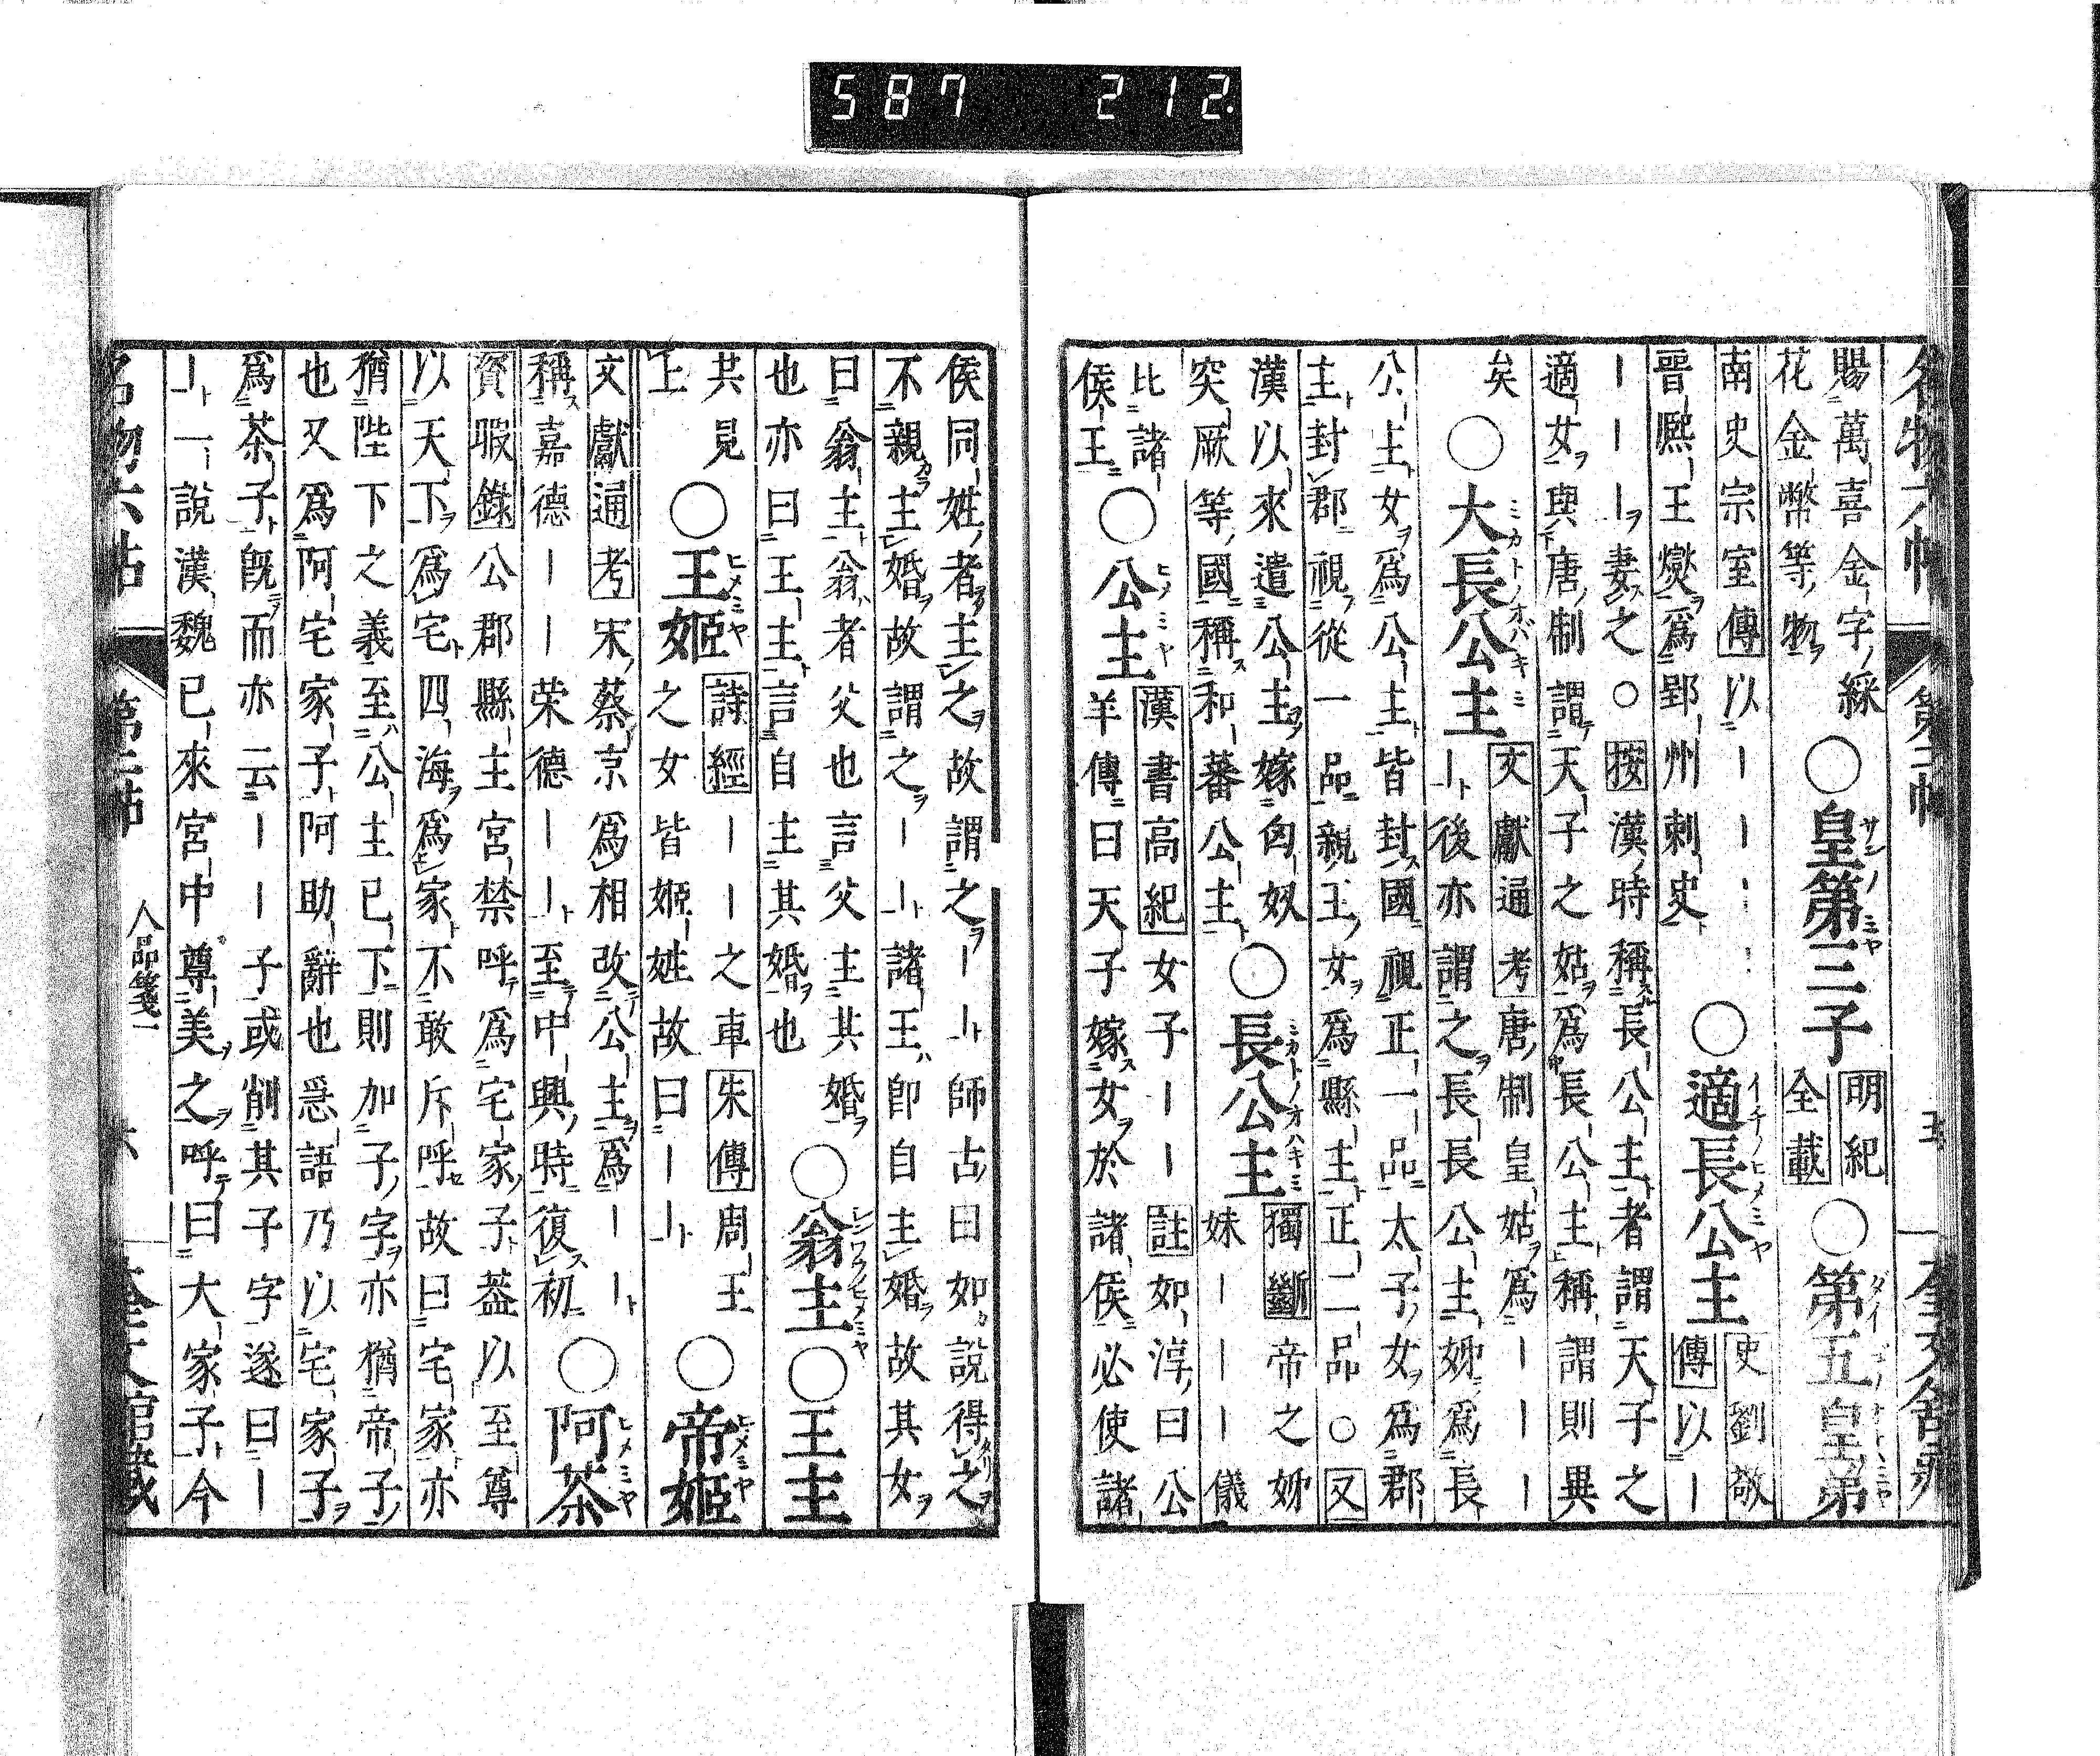 587 212.
名物六帖 第二帖 五 奎文館藏
賜萬喜金字ノ綵
花金幣等物ヲ
○皇第三子 サンノミヤ
明紀
全載
○第五皇弟
南史宗室傳以｜｜｜｜
晉熈王燮爲郢州刺史
○適長公主 イチノヒメミヤ
史劉敬
傳以｜
｜｜｜妻之○按漢時稱長公主者謂天子之
適女與唐制謂天子之姑爲長公主稱謂則異
矣
○大長公主 ミカトノオバキミ
文獻通考唐制皇姑爲｜｜｜
｜後亦謂之長長公主姊爲長
公主女爲公主皆封國視正一品太子女爲郡
主封郡視從一品親王女爲縣主正二品○又
漢以來遣公主嫁匈奴
突厥等國稱和蕃公主
○長公主 ミカトノオハキミ
獨斷帝之姊
妹｜｜｜儀
比諸
侯王
○公主 ヒメミヤ
漢書高紀女子｜｜註如淳曰公
羊傳曰天子嫁女於諸侯必使諸
侯同姓者主之故謂之｜｜師古曰如說得之
不親主婚故謂之｜｜諸王即自主婚故其女
曰翁主翁者父也言父主其婚
也亦曰王主言自主其婚也
○翁主○王主
共見
上
○王姬 ヒメミヤ
詩經｜｜之車朱傳周王
之女皆姬姓故曰｜｜
○帝姬 ヒメミヤ
文獻通考宋蔡京爲相改公主爲｜｜
稱嘉德｜｜荣德｜｜至中興時復初
○阿茶 ヒメミヤ
資暇錄公郡縣主宮禁呼爲宅家子葢以至尊
以天下爲宅四海爲家不敢斥呼故曰宅家亦
猶陛下之義至公主已下則加子字亦猶帝子
也又爲阿宅家子阿助辭也急語乃以宅家子
爲茶子旣而亦云｜｜子或削其子字遂曰｜
｜一說漢魏已來宮中尊美之呼曰大家子今
名物六帖 第二帖 人品箋一 六 奎文館藏